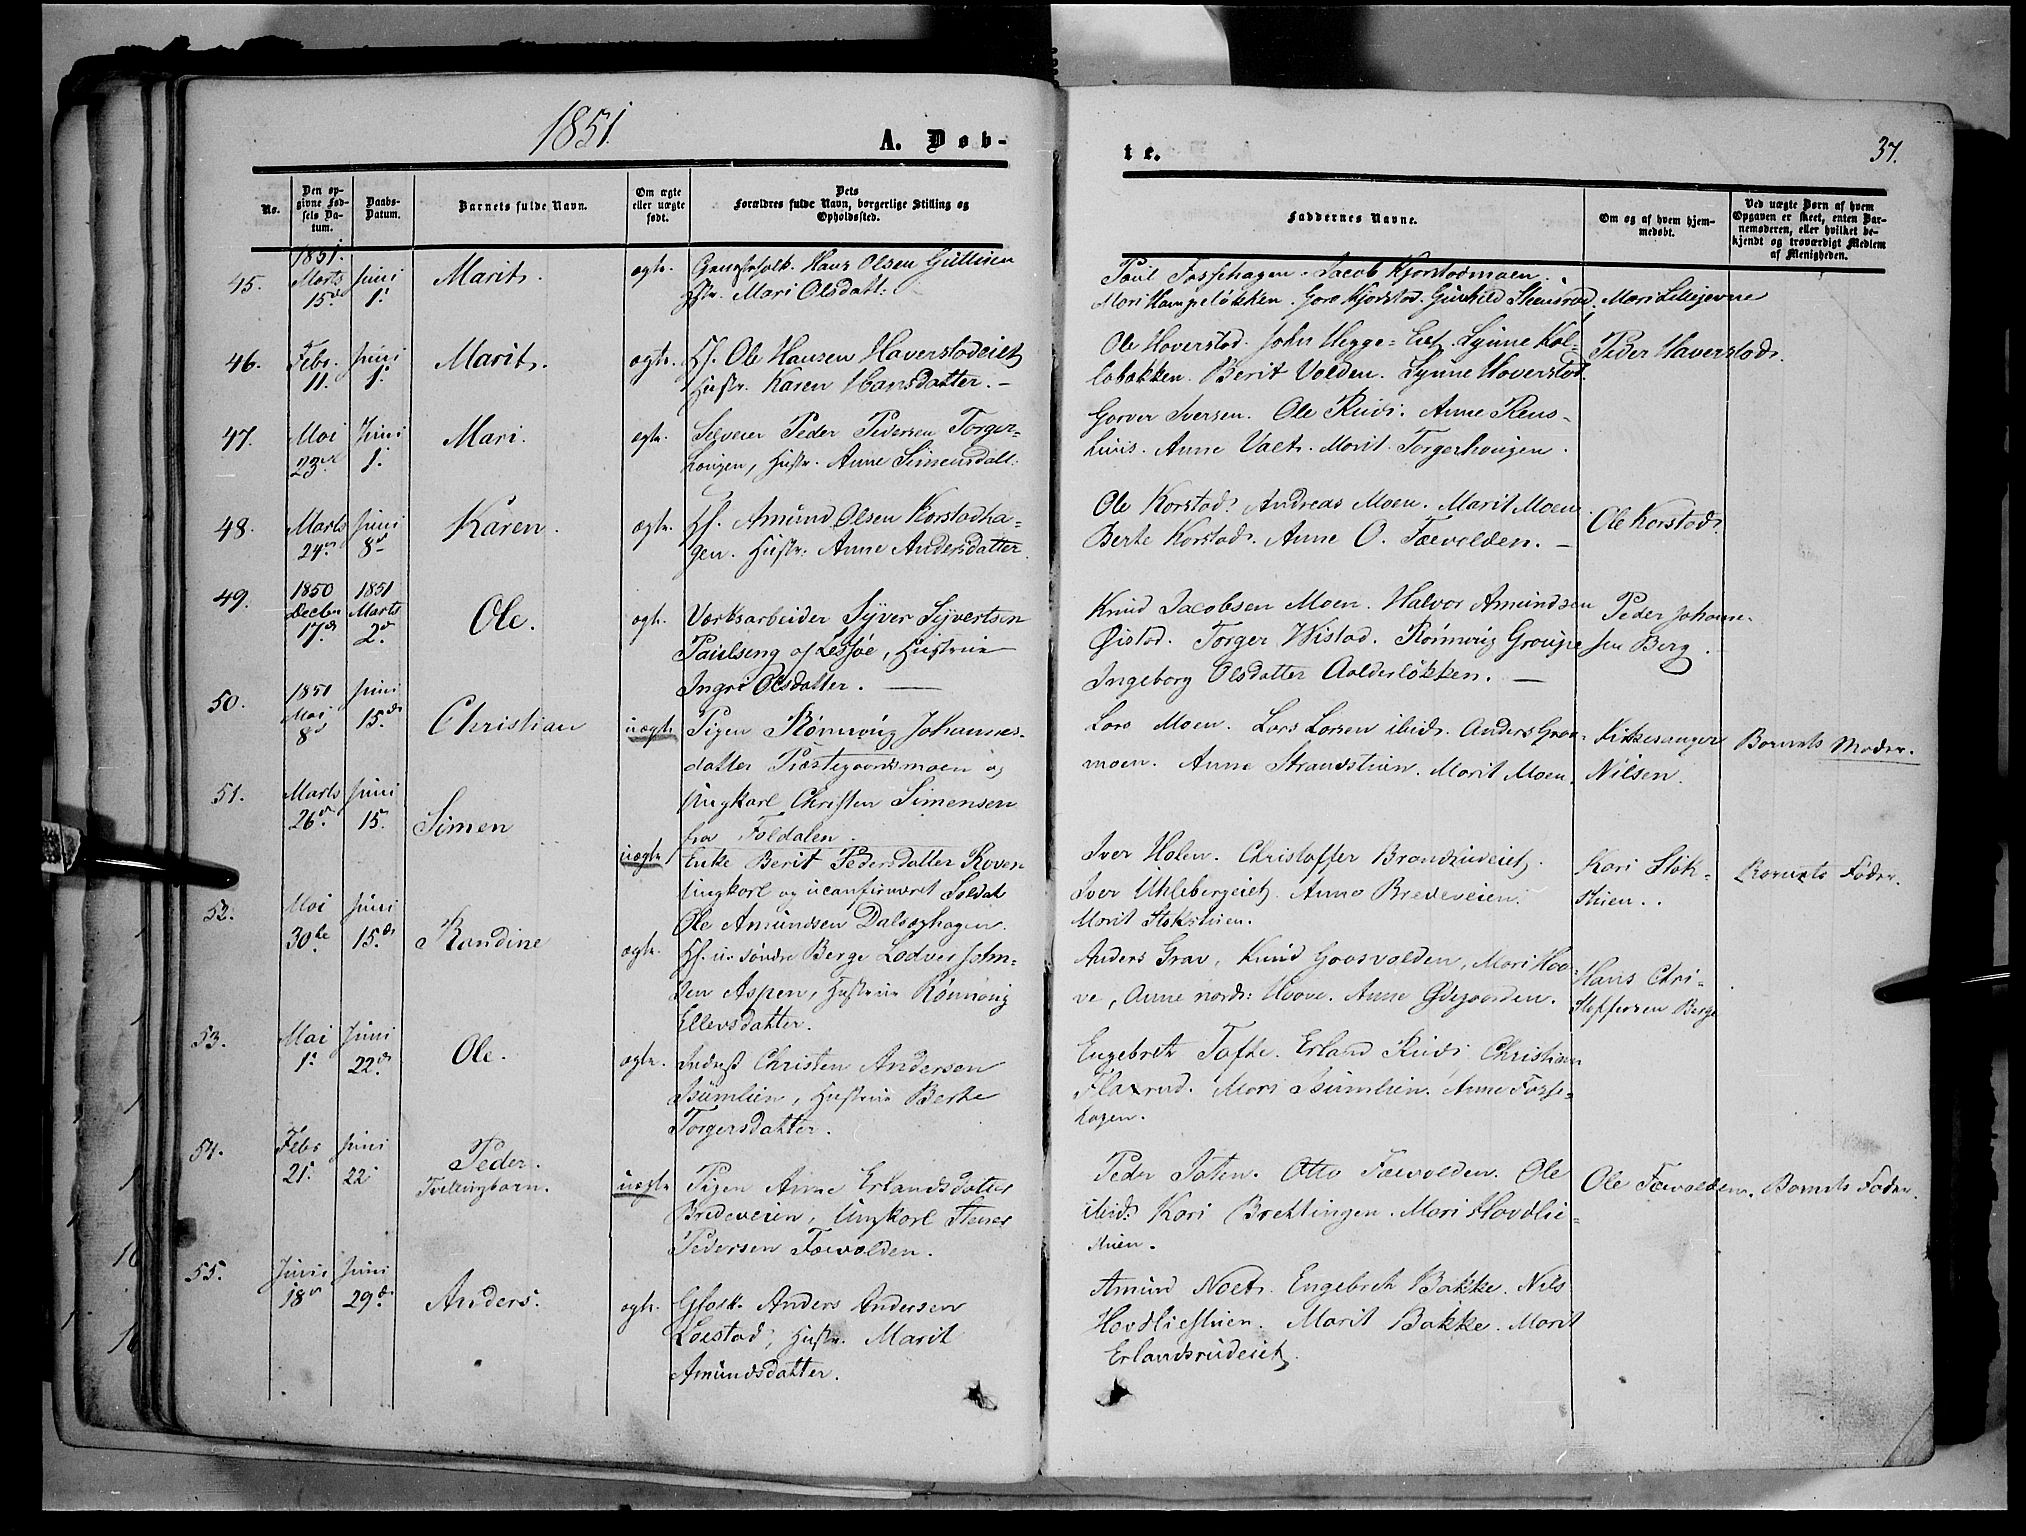 1851.
A. Døb-
te.
37.
No.
Den op-
givne Fød-
sels Da-
tum.
Daabs-
Datum.
Barnets fulde Navn.
Om ægte
eller uægte
født.
Dets
Forældres fulde Navn, borgerlige Stilling og
Opholdssted.
Faddernes Navne.
Om og af hvem hjem-
medøbt.
Ved uægte Børn af hvem
Opgaven er skeet, enten Bar-
nemoderen, eller hvilket be-
kjendt og troværdigt Medlem
af Menigheden.
1851.
45. Marts 15de Juni 1. Marit. ægte. Hans Olsen
Hstr. Mari Olsdatt:
Poul Fossehagen. Jacob Kjorstadmoen.
Mari Hampeløkken. Goro Kjorstad. Gunhild Steinsrud. Mari Lillejevne
46. Febr. 11. Juni 1. Marit. ægte. Hf. Ole Hansen Haverstadeiet
Hustr. Karen Hansdatter. –
Ole Hoverstad. John Hegge-Eiet. Synne Kol-
lobakken. Berit Volden. Synne Hoverstad.
Peder Haverstad.
47. Mai 23de Juni 1. Mari. egte. Selveier Peder Pedersen Torger-
hougen, Hustr. Anne Simensdatt:
Iversen. Ole Ruud. Anne
Anne Marit Torgerhougen.
48. Marts 24de Juni 8de Karen. ægte. Hf. Amund Olsen Korstadha-
gen. Hustr. Anne Andersdatter.
Ole Korstad. Andreas Moen. Marit Moen.
Berte Korstad. Anne O. Fævolden. –
Ole Korstad.
49. 1850 Decbr 17de 1851 Marts 2de Ole. ægte. Værksarbeider Syver Syvertsen
Paulseng af Lesjøe, Hustrue
Ingrø Olsdatter. –
Knud Jacobsen Moen. Halvor Amundsen
Øistad. Torger Wistad. Rønnoug Groupe
Ingeborg Olsdatter Aalderløkken. –
Peder Johann-
sen Berg.
50. 1851 Mai 8de Juni 15de Christian uægte Pigen Rønnoug Johannes-
datter Præstegaardsmoen og
Ungkarl Christen Simensen
fra Foldalen.
Lars Moen. Lars Larsen ibid. Anders Grav-
moen. Anne Strandstuen. Marit Moen.
Kirkesanger
Nilsen.
Barnets Moder.
51. Marts 26de Juni 15. Simen uægte Enke Berit Pedersdatter
Ungkarl og uconfirmeret Soldat
Ole Amundsen Dalseghagen.
Iver Holen. Christoffer Brandrudeiet.
Iver Uhlebergeiet. Anne Bredeveien.
Marit Stokstuen.
Kari Stok-
stuen.
Barnets Fader.
52. Mai 30te Juni 15de Randine ægte. Hf. u. søndre Berge Lodver John-
sen Aspen, Hustrue Rønnoug
Ellevsdatter.
Anders Grav, Knud Goosvolden, Mari Hoo-
ve, Anne nord: Hoove. Anne Ødegaarden.
Hans Chri-
stoffersen Berge
53. Mai 1. Juni 22de Ole. ægte. Inderst Christen Andersen
Bumlien, Hustrue Berte
Torgersdatter.
Engebret Tofte. Erland Ruud. Christian
Flaxrud. Mari Bumlien. Anne Fosse-
hagen.
54. Febr 21. Juni 22. Peder.
Tvillingbarn. uægte Pigen Anne Erlandsdatter
Bredeveien, Ungkarl Stener
Pedersen Fævolden.
Peder Joten. Otto Fævolden. Ole
ibid: Kari Brettingen. Mari Hovdlie-
stuen.
Ole Fævolden. Barnets Fader.
55. Juni 18de Juni 29de Anders. ægte. Gfolk Anders Andersen
Loestad, Hustr. Marit
Amundsdatter.
Amund Noet. Engebret Bakke. Nils
Hovdliestuen. Marit Bakke. Marit
Erlandsrudeiet.